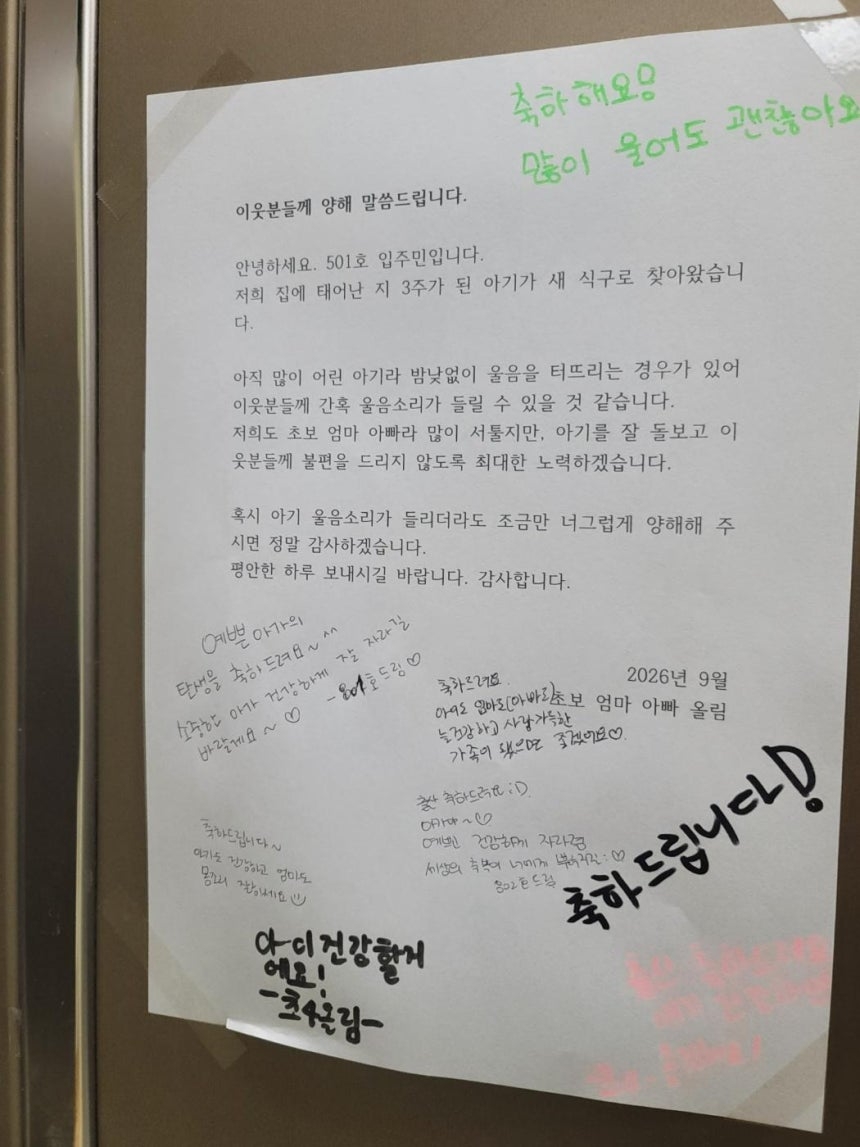 축하해요!
많이 울어도 괜찮아요
이웃분들께 양해 말씀드립니다.
안녕하세요. 501호 입주민입니다.
저희 집에 태어난 지 3주가 된 아기가 새 식구로 찾아왔습니
다.
아직 많이 어린 아기라 밤낮없이 울음을 터뜨리는 경우가 있어
이웃분들께 간혹 울음소리가 들릴 수 있을 것 같습니다.
저희도 초보 엄마 아빠라 많이 서툴지만, 아기를 잘 돌보고 이
웃분들께 불편을 드리지 않도록 최대한 노력하겠습니다.
혹시 아기 울음소리가 들리더라도 조금만 너그럽게 양해해 주
시면 정말 감사하겠습니다.
평안한 하루 보내시길 바랍니다. 감사합니다.
2026년 9월
초보 엄마 아빠 올림
예쁜 아가의
탄생을 축하드려요~^^
소중한 아가 건강하게 잘 자라길
바랄게요~♡ -801호드림♡
축하드려요
아이도 엄마도(아빠도)
늘건강하고 사랑가득한
가족이 됐으면 좋겠어요♡.
출산 축하드려요:D
아가야~♡
예쁘고 건강하게 자라렴
세상의 축복이 너에게 :♡
802호드림
축하드립니다~
아기도 건강하고 엄마도
몸조리 잘하세요
축하드립니다!
아디건강할거
에요!
-초4올림-